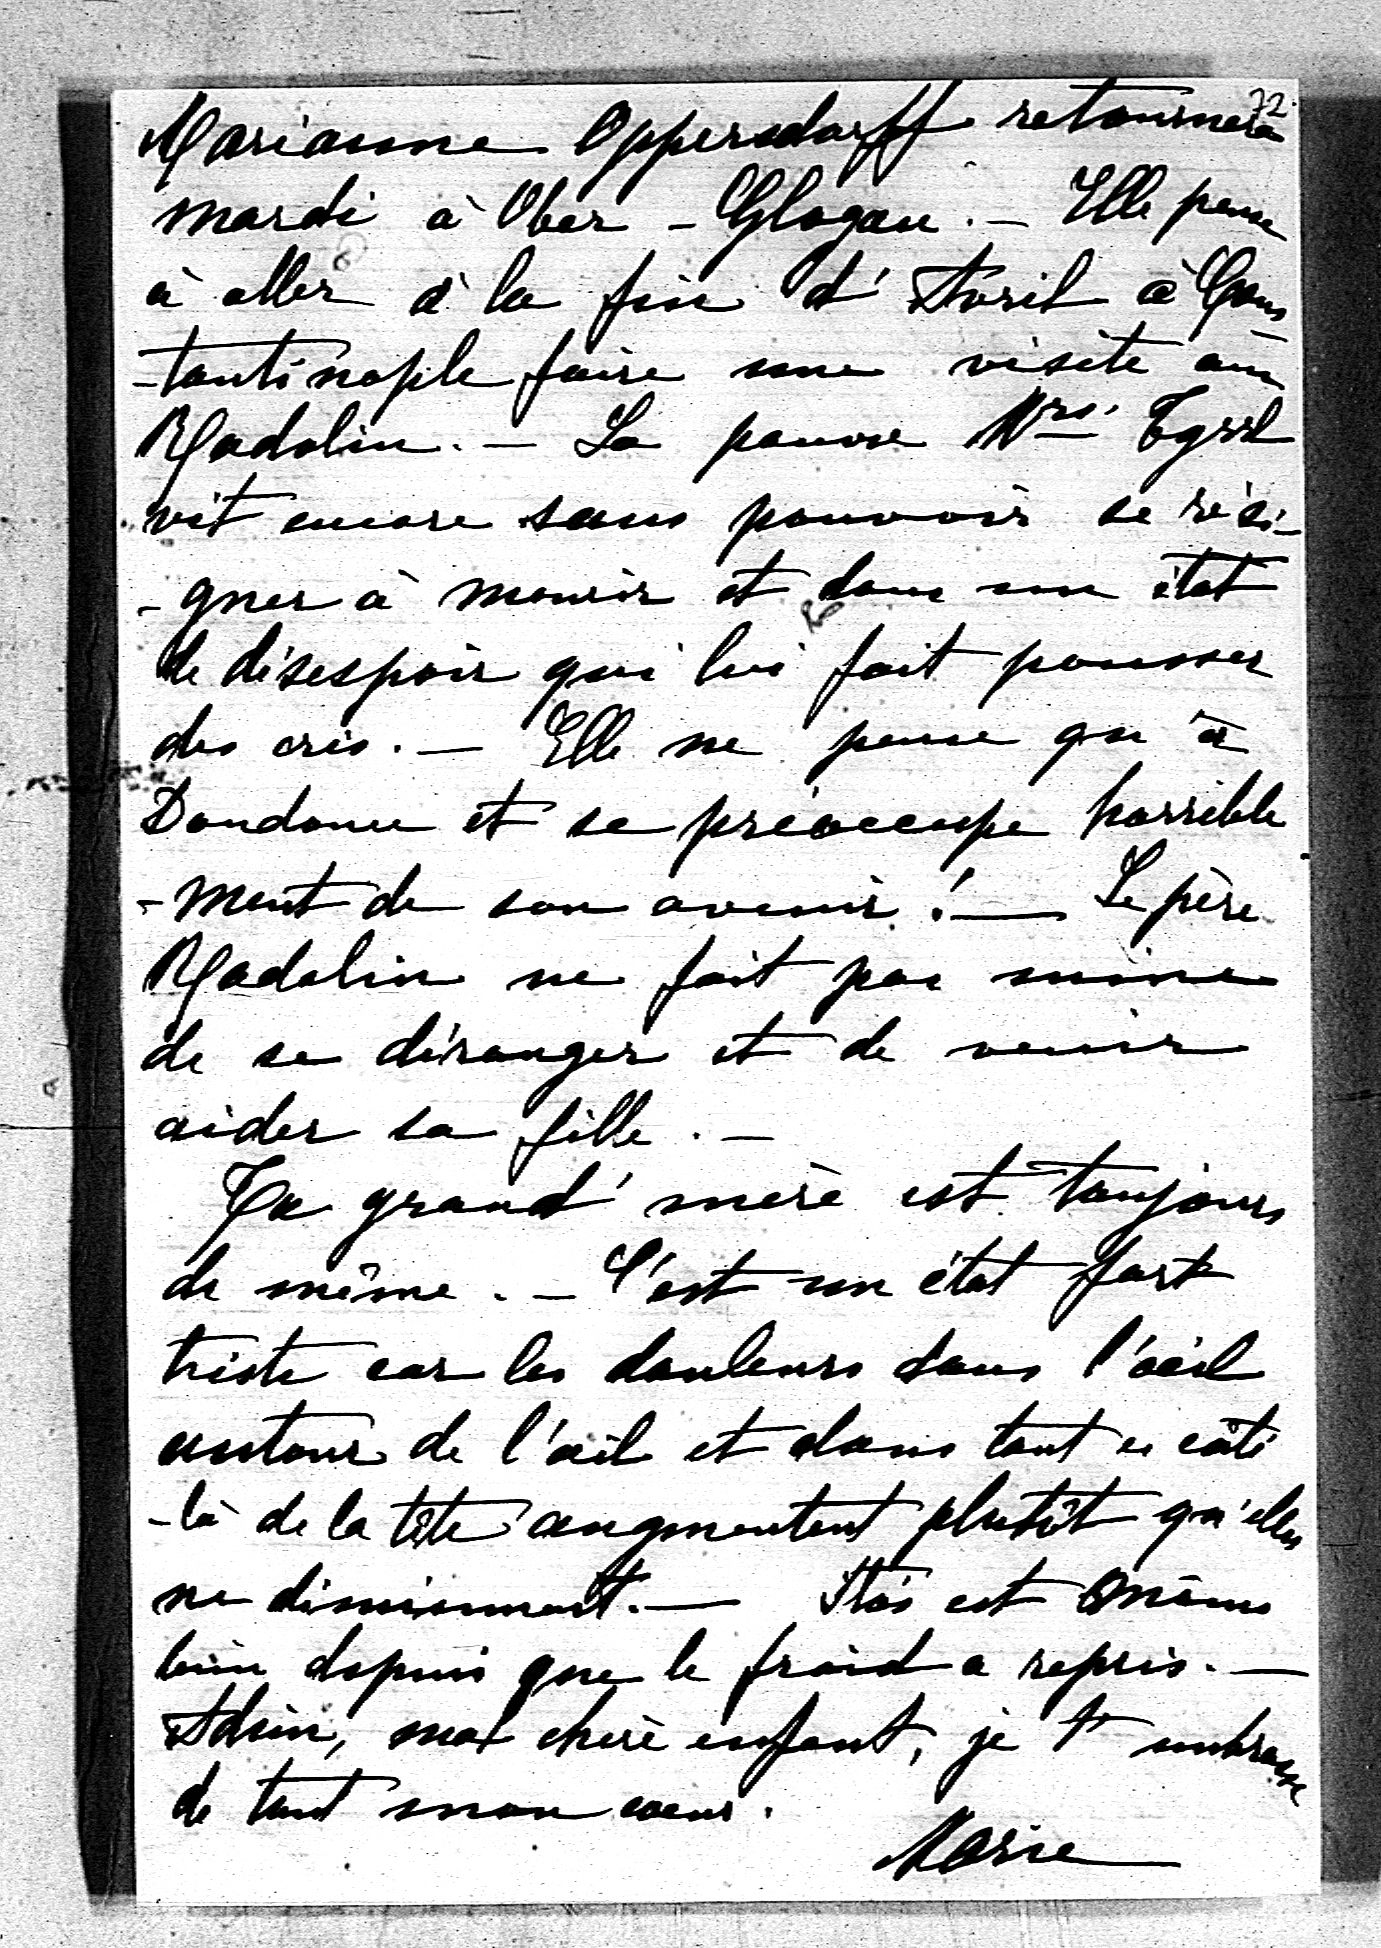 72
Marianne Oppersdorff retournera
mardi à Ober-Glogau. — Elle pense
à aller à la fin d'Avril à Cons
-tantinople faire une visite aux
Radolin. — La pauvre Mrs.
vit encore sans pouvoir se rési-
-gner à mourir et dans un état
de désespoir qui lui fait pousser
des cris. — Elle ne pense qu'à
et se préoccupe horrible
-ment de son avenir! — Le père
Radolin ne fait pas mine
de se déranger et de venir
aider sa fille. —
Ta grand'mère est toujours
de même. — C'est un état fort
triste car les douleurs dans l'œil
autour de l'œil et dans tout ce côté
-là de la tête augmentent plutôt qu'elles
ne diminuent. — est
bien depuis que le froid a repris. —
Adieu, ma chère enfant, je t'embrasse
de tout mon cœur.
Marie